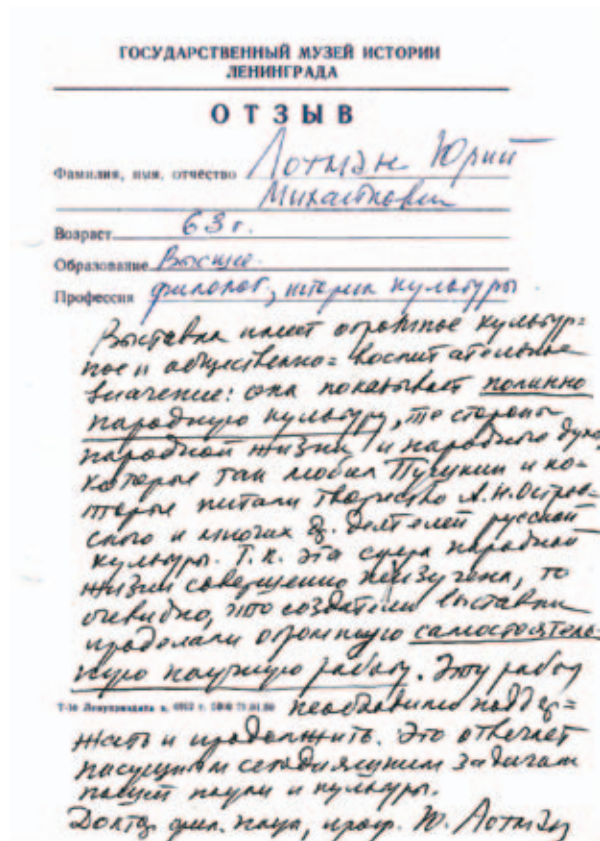 ГОСУДАРСТВЕННЫЙ МУЗЕЙ ИСТОРИИ
ЛЕНИНГРАДА
ОТЗЫВ
Фамилия, имя, отчество Лотман Юрий
Михайлович
Возраст 63 г.
Образование Высшее.
Профессия филолог, историк культуры.
Выставка имеет огромное культур=
ное и общественно=воспитательное
значение: она показывает подлинно
народную культуру, те стороны
народной жизни и народного духа,
которые так любил Пушкин и ко-
торые питали творчество А.Н.Остров-
ского и многих др. деятелей русской
культуры. Т.к. эта сфера народной
жизни совершенно неизучена, то
очевидно, что создатели выставки
проделали огромную самостоятель-
ную научную работу. Эту работу
необходимо поддер=
жать и продолжить. Это отвечает
насущным сегодняшним задачам
нашей науки и культуры.
Доктор фил. наук, проф. Ю. Лотман